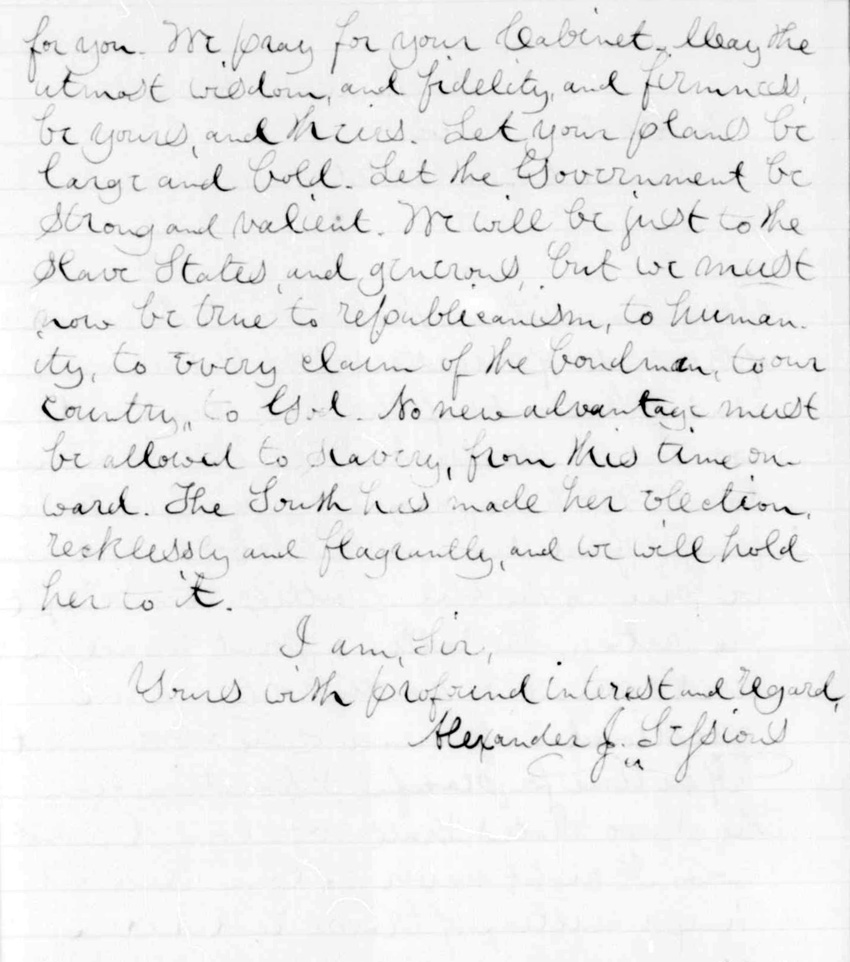 for you. We pray for your Cabinet. May the
utmost wisdom, and fidelity, and firmness,
be yours, and theirs. Let your plans be
large and bold. Let the Government be
strong and valient. We will be just to the
slave States, and generous, but we must
now be true to republicanism, to human-
ity, to every claim of the bondman, to our
country, to God. No new advantage must
be allowed to slavery, from this time on-
ward. The South has made her election,
recklessly and flagrantly, and we will hold
her to it.
I am, Sir,
Yours with profound interest and regard,
Alexander J. Sessions